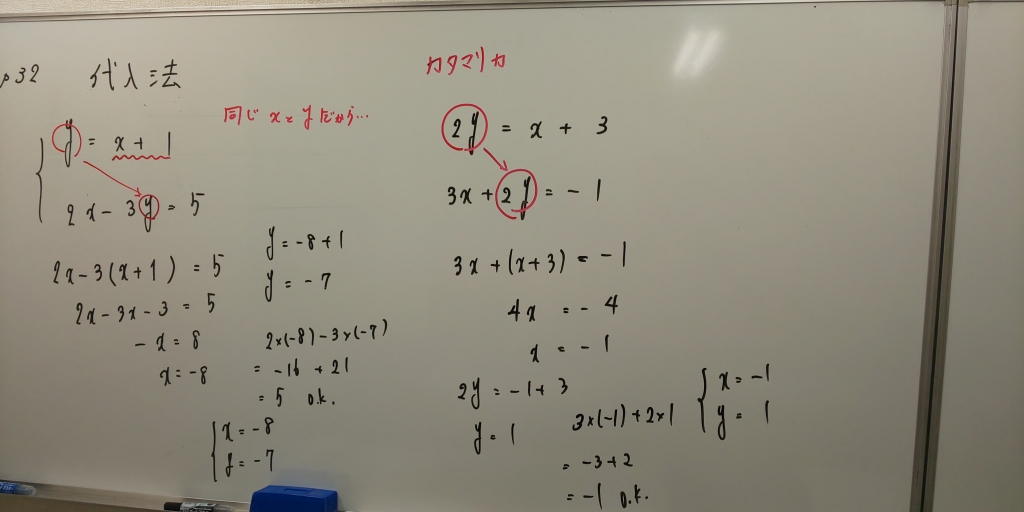 p32 代入法
同じ xとyだから…
y = x + 1
2x - 3y = 5
2x - 3(x + 1) = 5
2x - 3x - 3 = 5
- x = 8
x = -8
y = -8 + 1
y = -7
2×(-8) - 3×(-7)
= -16 + 21
= 5 o.k.
x = -8
y = -7
カタマリカ
2y = x + 3
3x + 2y = -1
3x + (x+3) = -1
4x = -4
x = -1
2y = -1 + 3
y = 1
3×(-1) + 2×1
= -3 + 2
= -1 o.k.
x = -1
y = 1